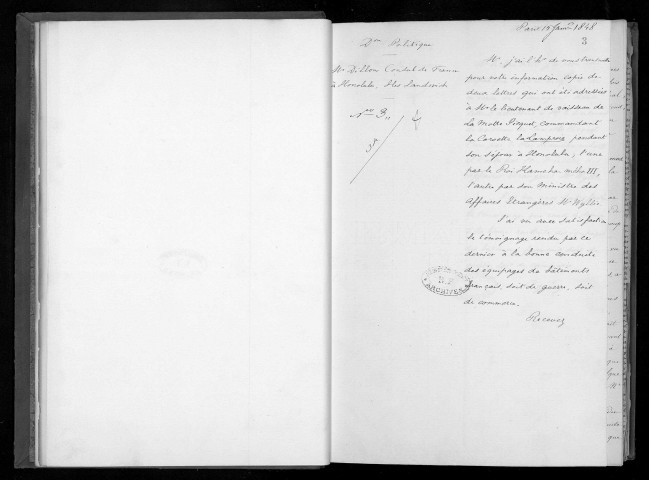 Paris 15 Janv. 1848
3
Don Politique
Mr Dillon Consul de France
à Honolulu, Iles Sandwich
No 3
Mr, j'ai l'hr de vous transmettre
pour votre information copie de
deux lettres qui ont été adressées
à Mr le lieutenant de vaisseau de
la Motte Picquet, commandant
la Corvette, pendant
son séjour à Honolulu, l'une
par le Roi Kameha meha III,
l'autre par son Ministre des
Affaires Etrangères Mr Wyllie.
J'ai vu avec satisfaction
le témoignage rendu par ce
dernier à la bonne conduite
des équipages de bâtiments
français, soit de guerre, soit
de commerce.
Recevez
ARCHIVES